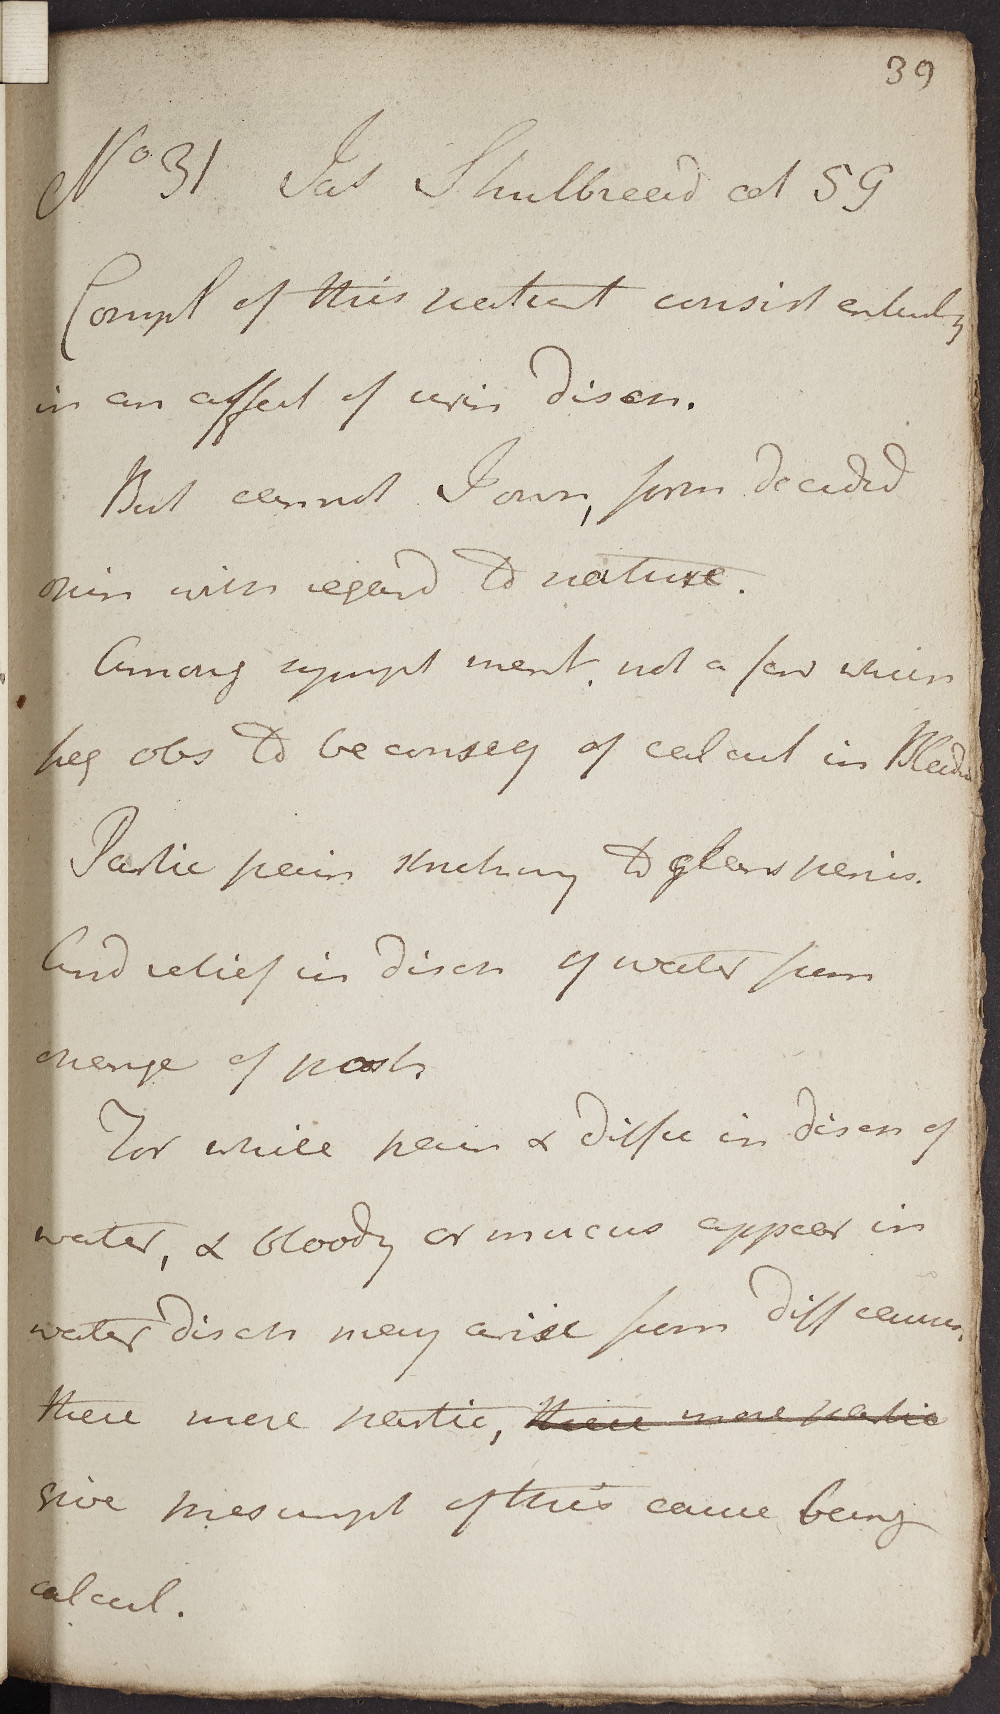 39
No 31 Jas Shulbread aet 59
Compl of this patient consist entirely
in an affect of urin disch.
But cannot I own, form decided
opin with regard to nature.
Among sympt ment. not a few which
freq obs to be conseq of calcul in Bladd
Partic pain stretching to glans penis.
And relief in disch of water from
change of post.
For while pain & diffic in disch of
water, & bloody or mucus appear in
water disch may arise from diff causes,
these more partic, these more partic
give presumpt of this cause being
calcul.